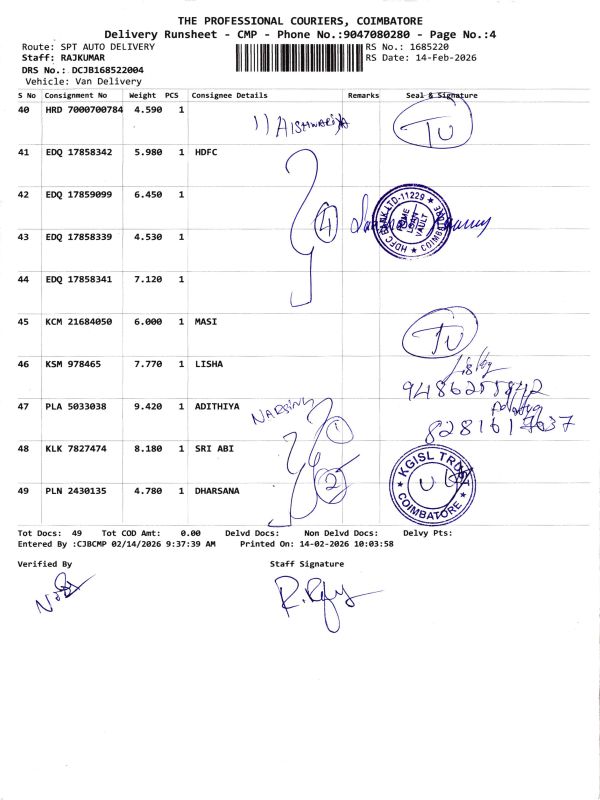 THE PROFESSIONAL COURIERS, COIMBATORE
Delivery Runsheet - CMP - Phone No.:9047080280 - Page No.:4
Route: SPT AUTO DELIVERY
RS No.: 1685220
Staff: RAJKUMAR
RS Date: 14-Feb-2026
DRS No.: DCJB168522004
Vehicle: Van Delivery
S No Consignment No Weight PCS Consignee Details Remarks Seal & Signature
40 HRD 7000700784 4.590 1
AISHWARIYA
TU
41 EDQ 17858342 5.980 1 HDFC
42 EDQ 17859099 6.450 1
4
HDFC BANK LTD-11229 ★ COIMBATORE ★
HOME LOAN VAULT
43 EDQ 17858339 4.530 1
44 EDQ 17858341 7.120 1
45 KCM 21684050 6.000 1 MASI
TU
46 KSM 978465 7.770 1 LISHA
9486255842
47 PLA 5033038 9.420 1 ADITHIYA
1
8281617037
48 KLK 7827474 8.180 1 SRI ABI
KGISL TRUST
★ COIMBATORE ★
49 PLN 2430135 4.780 1 DHARSANA
2
Tot Docs: 49 Tot COD Amt: 0.00 Delvd Docs: Non Delvd Docs: Delvy Pts:
Entered By :CJBCMP 02/14/2026 9:37:39 AM Printed On: 14-02-2026 10:03:58
Verified By Staff Signature